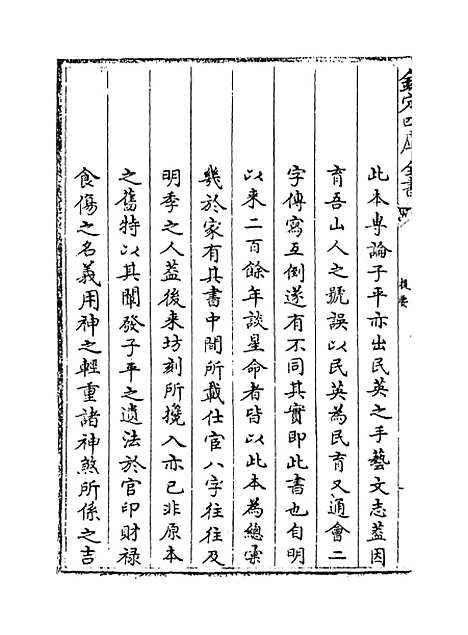 欽定四庫全書
提要
此本專論子平亦出民英之手藝文志蓋因
育吾山人之號誤以民英為民育又通會二
字傳寫互倒遂有不同其實即此書也自明
以來二百餘年談星命者皆以此本為總彚
幾於家有其書中間所載仕宦八字往往及
明季之人蓋後來坊刻所攙入亦已非原本
之舊特以其闡發子平之遺法於官印財禄
食傷之名義用神之輕重諸神煞所係之吉